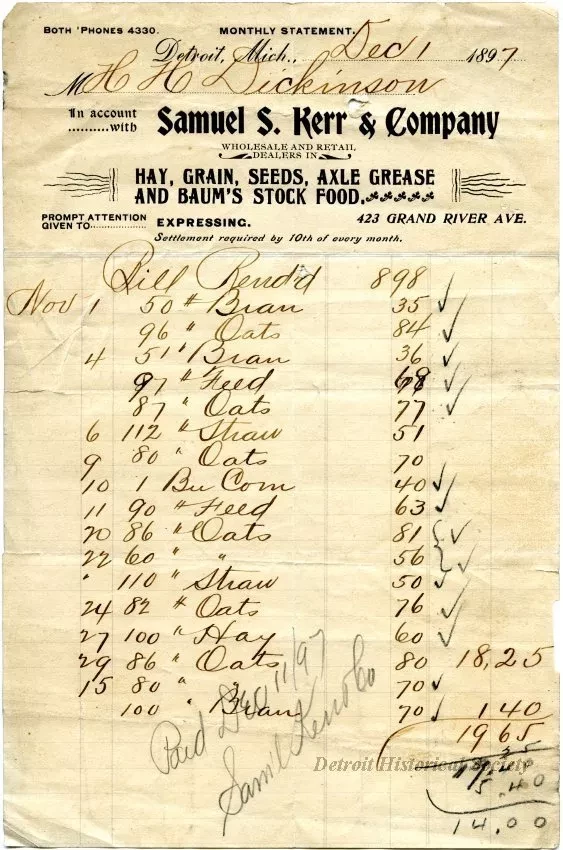 BOTH 'PHONES 4330. MONTHLY STATEMENT.
Detroit, Mich., Dec 1 1897
M H H Dickinson
In account
..........with Samuel S. Kerr & Company
WHOLESALE AND RETAIL
DEALERS IN
HAY, GRAIN, SEEDS, AXLE GREASE
AND BAUM'S STOCK FOOD.
PROMPT ATTENTION
GIVEN TO.............. EXPRESSING. 423 GRAND RIVER AVE.
Settlement required by 10th of every month.
Bill Rend'd 898
Nov 1 50 # Bran 35 ✓
96 " Oats 84 ✓
4 51 " Bran 36 ✓
97 " Feed 68 ✓
87 " Oats 77 ✓
6 112 " Straw 51
9 80 " Oats 70
10 1 Bu Corn 40 ✓
11 90 # Feed 63 ✓
20 86 " Oats 81 ✓
22 60 " " 56 ✓
" 110 " Straw 50 ✓
24 82 # Oats 76 ✓
27 100 " Hay 60 ✓
29 86 " Oats 80 18,25
15 80 " 70 ✓
100 " Bran 70 ✓ 140
1965
5.40
14.00
Paid Dec 11/97
Saml Kerr & Co
Detroit Historical Society